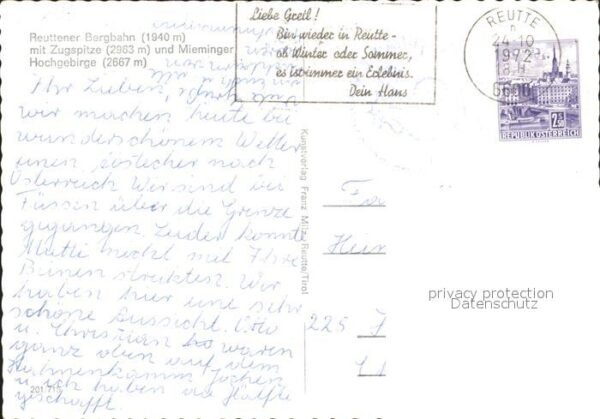 Reuttener Bergbahn (1940 m)
mit Zugspitze (2963 m) und Mieminger
Hochgebirge (2667 m)
Liebe Greil!
Bin wieder in Reutte -
ob Winter oder Sommer,
es ist immer ein Erlebnis.
Dein Hans
REUTTE
24.10
1972
18
6600
2.50
REPUBLIK ÖSTERREICH
Ihr Lieben,
wir machen heute bei
wunderschönem Wetter
einen Abstecher nach
Österreich. Wir sind bei
Füssen über die Grenze
gegangen. Leider konnte
Mutti nicht mit Ihre
Beinen streikten. Wir
haben hier eine sehr
schöne Aussicht. Otto
u. Christian waren
ganz oben auf dem
Hahnenkamm Jochen
u. ich haben die Hälfte
geschafft.
Kunstverlag Franz Milz, Reutte/Tirol
Fa
Hein
225
privacy protection
Datenschutz